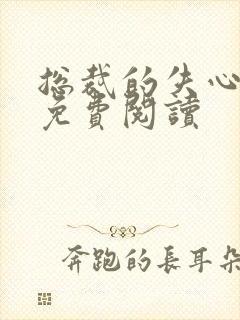 总裁的失心
免費閱讀
奔跑的長耳朵